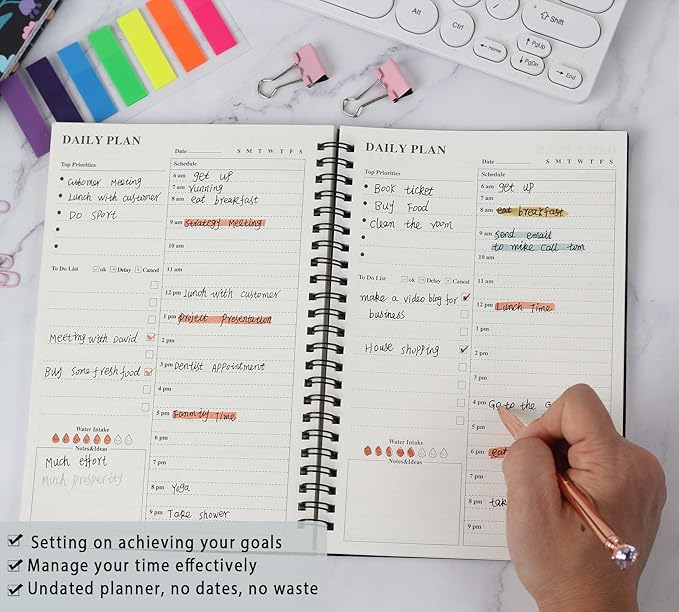 Alt
Ctrl
Shift
← Home
↑ PgUp
↓ PgDn
→ End
DAILY PLAN
Date
S M T W T F S
Top Priorities
cutomer meeting
Lunch with customer
Do sport
To Do List ok Delay Cancel
Meeting with David
Buy some fresh food
Water Intake
Notes&Ideas
Much effort
Much prosperity
Schedule
6 am get up
7 am running
8 am eat breakfast
9 am strategy meeting
10 am
11 am
12 pm Lunch with customer
1 pm Project presentation
2 pm
3 pm Dentist Appointment
4 pm
5 pm Family Time
6 pm
7 pm
8 pm Yoga
9 pm Take shower
DAILY PLAN
Date
S M T W T F S
Top Priorities
Book ticket
Buy Food
clean the room
To Do List ok Delay Cancel
make a video blog for
business
House shopping
Water Intake
Notes&Ideas
Schedule
6 am get up
7 am
8 am eat breakfast
9 am send email
to mike call tom
10 am
11 am
12 pm Lunch Time
1 pm
2 pm
3 pm
4 pm Go to the
5 pm
6 pm eat
7 pm
8 pm
9 pm
Setting on achieving your goals
Manage your time effectively
Undated planner, no dates, no waste